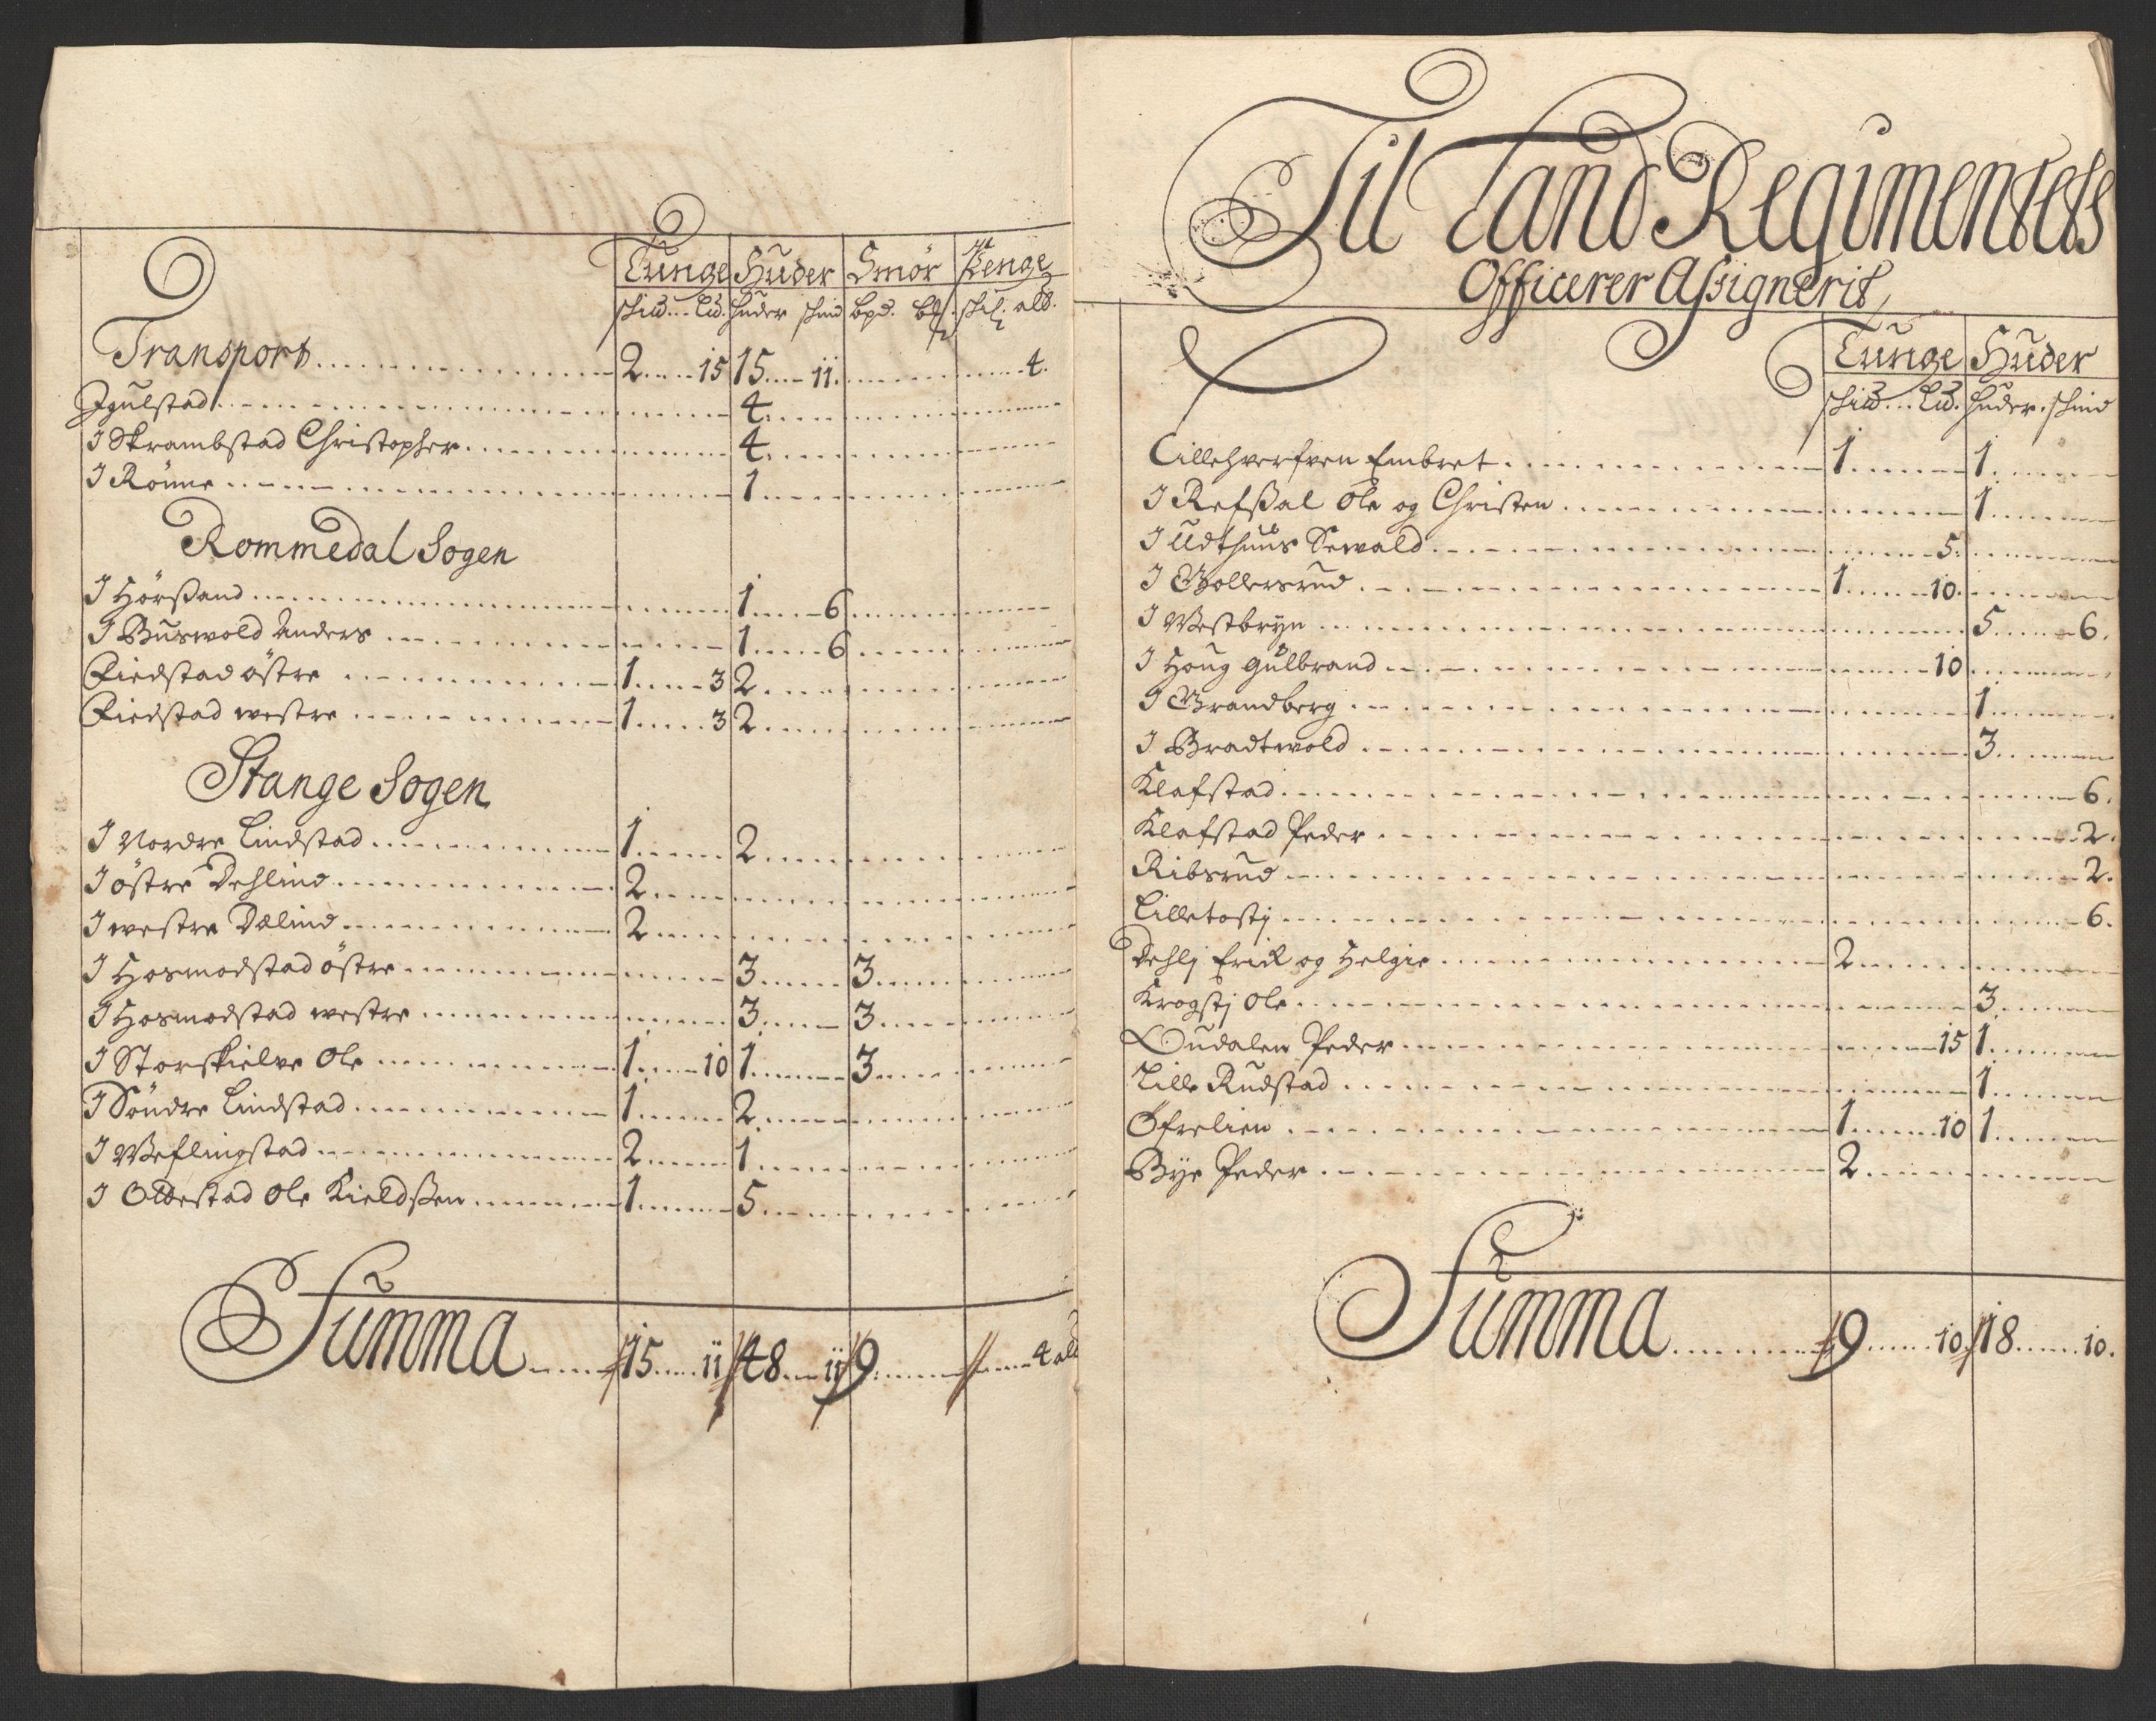 Tunge Huder Smör Penge
schið... Lð. Huder skind bpd. schil. alb.
Transport 2 15 15 11 4.
Igulstad 4
I Skrambstad Christopher 4
I Rönne 1
Rommedal Sogen
I Hörßand 1 6
I Buswold Anders 1 6
Fiedstad östre 1 3 2
Fiedstad westre 1 3 2
Stange Sogen
I Nordre Lindstad 1 2
I östre Dehlind 2
I westre Dælind 2
I Hosmodstad östre 3 3
I Hosmodstad westre 3 3
I Storskielve Ole 1 10 1 3
I Söndre Lindstad 1 2
I Weflingstad 2 1
I Oldestad Ole Kieldßen 1 5
Summa 15 11 48 11 9 4 alb
Til Land Regimentets
Officerer Assignerit
Tunge Huder
schið... Lð. Huder. skind
Lillehverfven Embret 1 1
I Refßal Ole og Christen 1
I Udthuus Sewald 5.
I Bollersrud 1 10.
I Westbryn 5 6.
I Houg Gulbrand 10
I Brandberg 1
I Bradtwold 3
Klafstad 6.
Klafstad Peder 2.
Ribsrud 2.
Lilletostj 6.
Dehlj Erick og Helgie 2
Krogstj Ole 3
Oudalen Peder 15 1
Lille Rudstad 1
Öfrelien 1 10 1
Bye Peder 2
Summa 9 10 18 10.